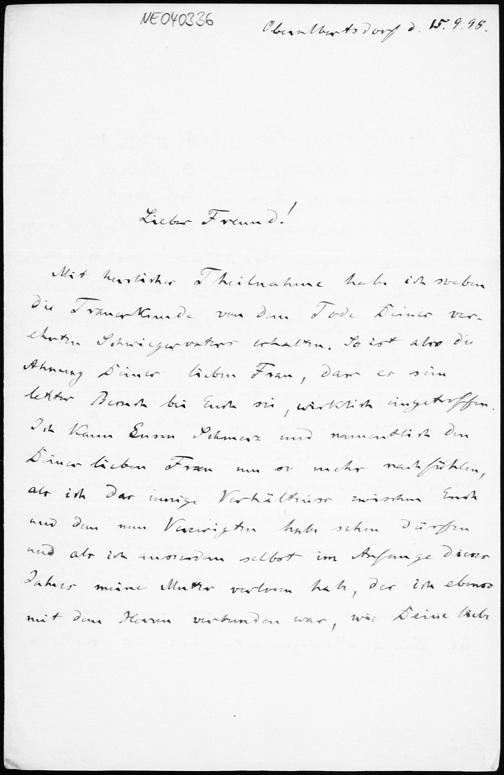 NE040336
Oberalbertsdorf d. 15.9.98.
Lieber Freund!
Mit herzlicher Theilnahme habe ich soeben
die Trauerkunde von dem Tode Deines ver-
ehrten Schwiegervaters erhalten. So ist also die
Ahnung Deiner lieben Frau, dass es sein
letzter Besuch bei Euch sei, wirklich eingetroffen.
Ich kann Euren Schmerz und namentlich den
Deiner lieben Frau um so mehr nachfühlen,
als ich das innige Verhältniss zwischen Euch
und dem nun Verewigten habe sehen dürfen
und als ich ausserdem selbst im Anfange dieses
Jahres meine Mutter verloren habe, der ich ebenso
mit dem Herzen verbunden war, wie Deine liebe